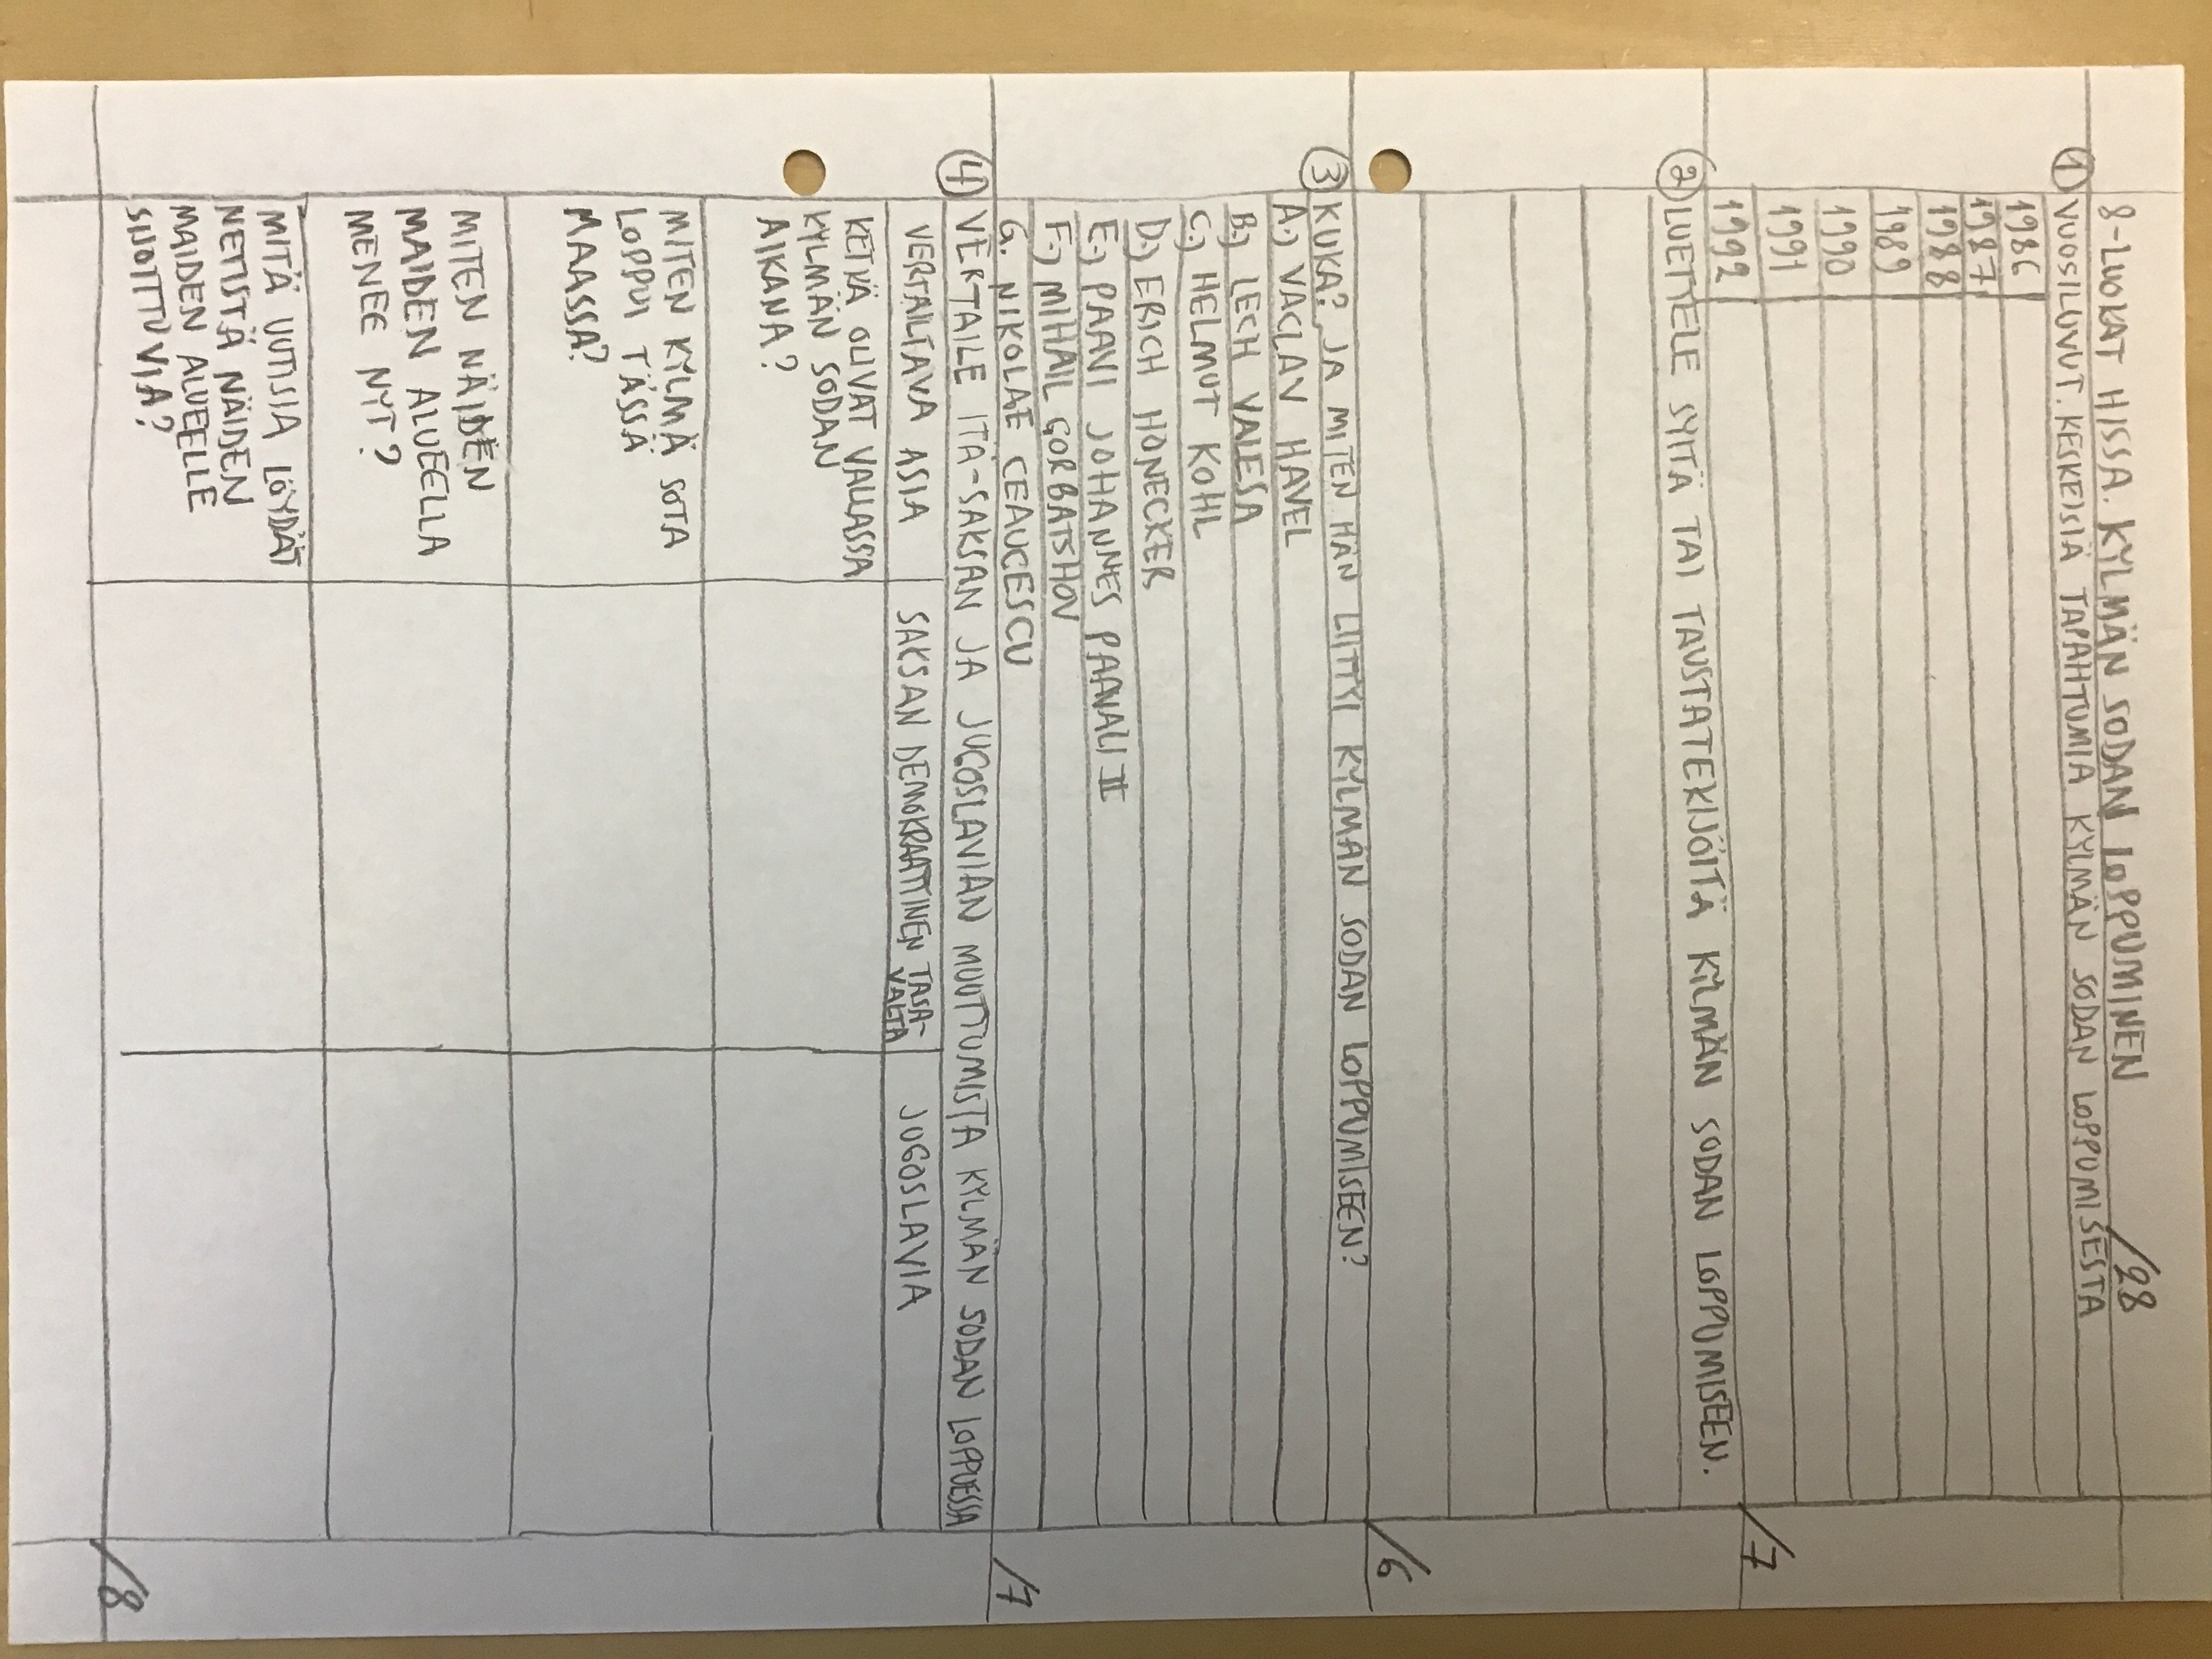 8-LUOKAT HISSA. KYLMÄN SODAN LOPPUMINEN /28
① VUOSILUVUT. KESKEISIÄ TAPAHTUMIA KYLMÄN SODAN LOPPUMISESTA
1986
1987
1988
1989
1990
1991
1992
/7
② LUETTELE SYITÄ TAI TAUSTATEKIJÖITÄ KYLMÄN SODAN LOPPUMISEEN.
/6
③ KUKA? JA MITEN HÄN LIITTYI KYLMÄN SODAN LOPPUMISEEN?
A.) VACLAV HAVEL
B.) LECH VALESA
C.) HELMUT KOHL
D.) ERICH HONECKER
E.) PAAVI JOHANNES PAAVALI II
F.) MIHAIL GORBATSHOV
G. NIKOLAE CEAUCESCU
/7
④ VERTAILE ITÄ-SAKSAN JA JUGOSLAVIAN MUUTTUMISTA KYLMÄN SODAN LOPPUESSA
VERTAILTAVA ASIA SAKSAN DEMOKRAATTINEN TASA-
VALTA
JUGOSLAVIA
KETKÄ OLIVAT VALLASSA
KYLMÄN SODAN
AIKANA?
MITEN KYLMÄ SOTA
LOPPUI TÄSSÄ
MAASSA?
MITEN NÄIDEN
MAIDEN ALUEELLA
MENEE NYT?
MITÄ UUTISIA LÖYDÄT
NETISTÄ NÄIDEN
MAIDEN ALUEELLE
SIJOITTUVIA?
/8